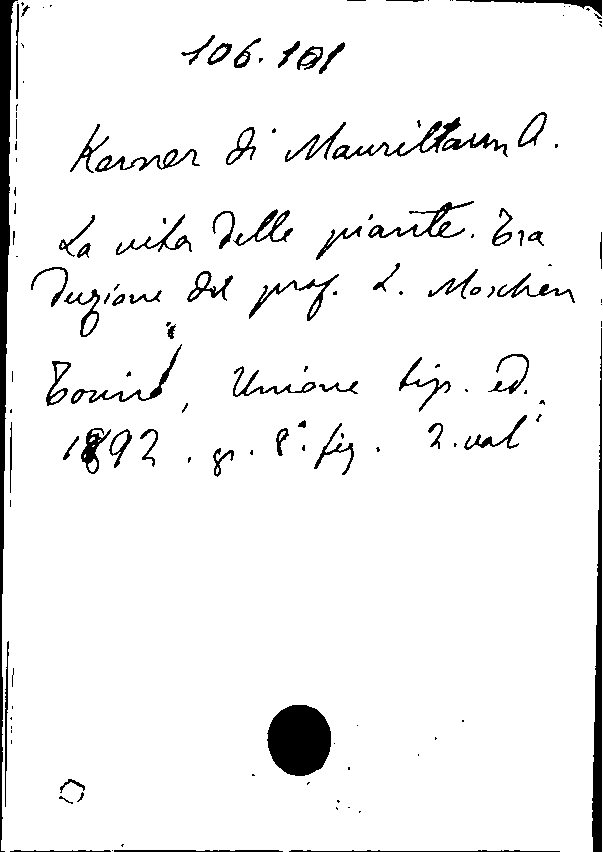 106.101
Kerner di Mauriltaum A.
La vita delle piante. Tra
duzione del prof. L. Moschen
Torino, Unione tip. ed.
1892. gr. 8°. fig. 2. vol